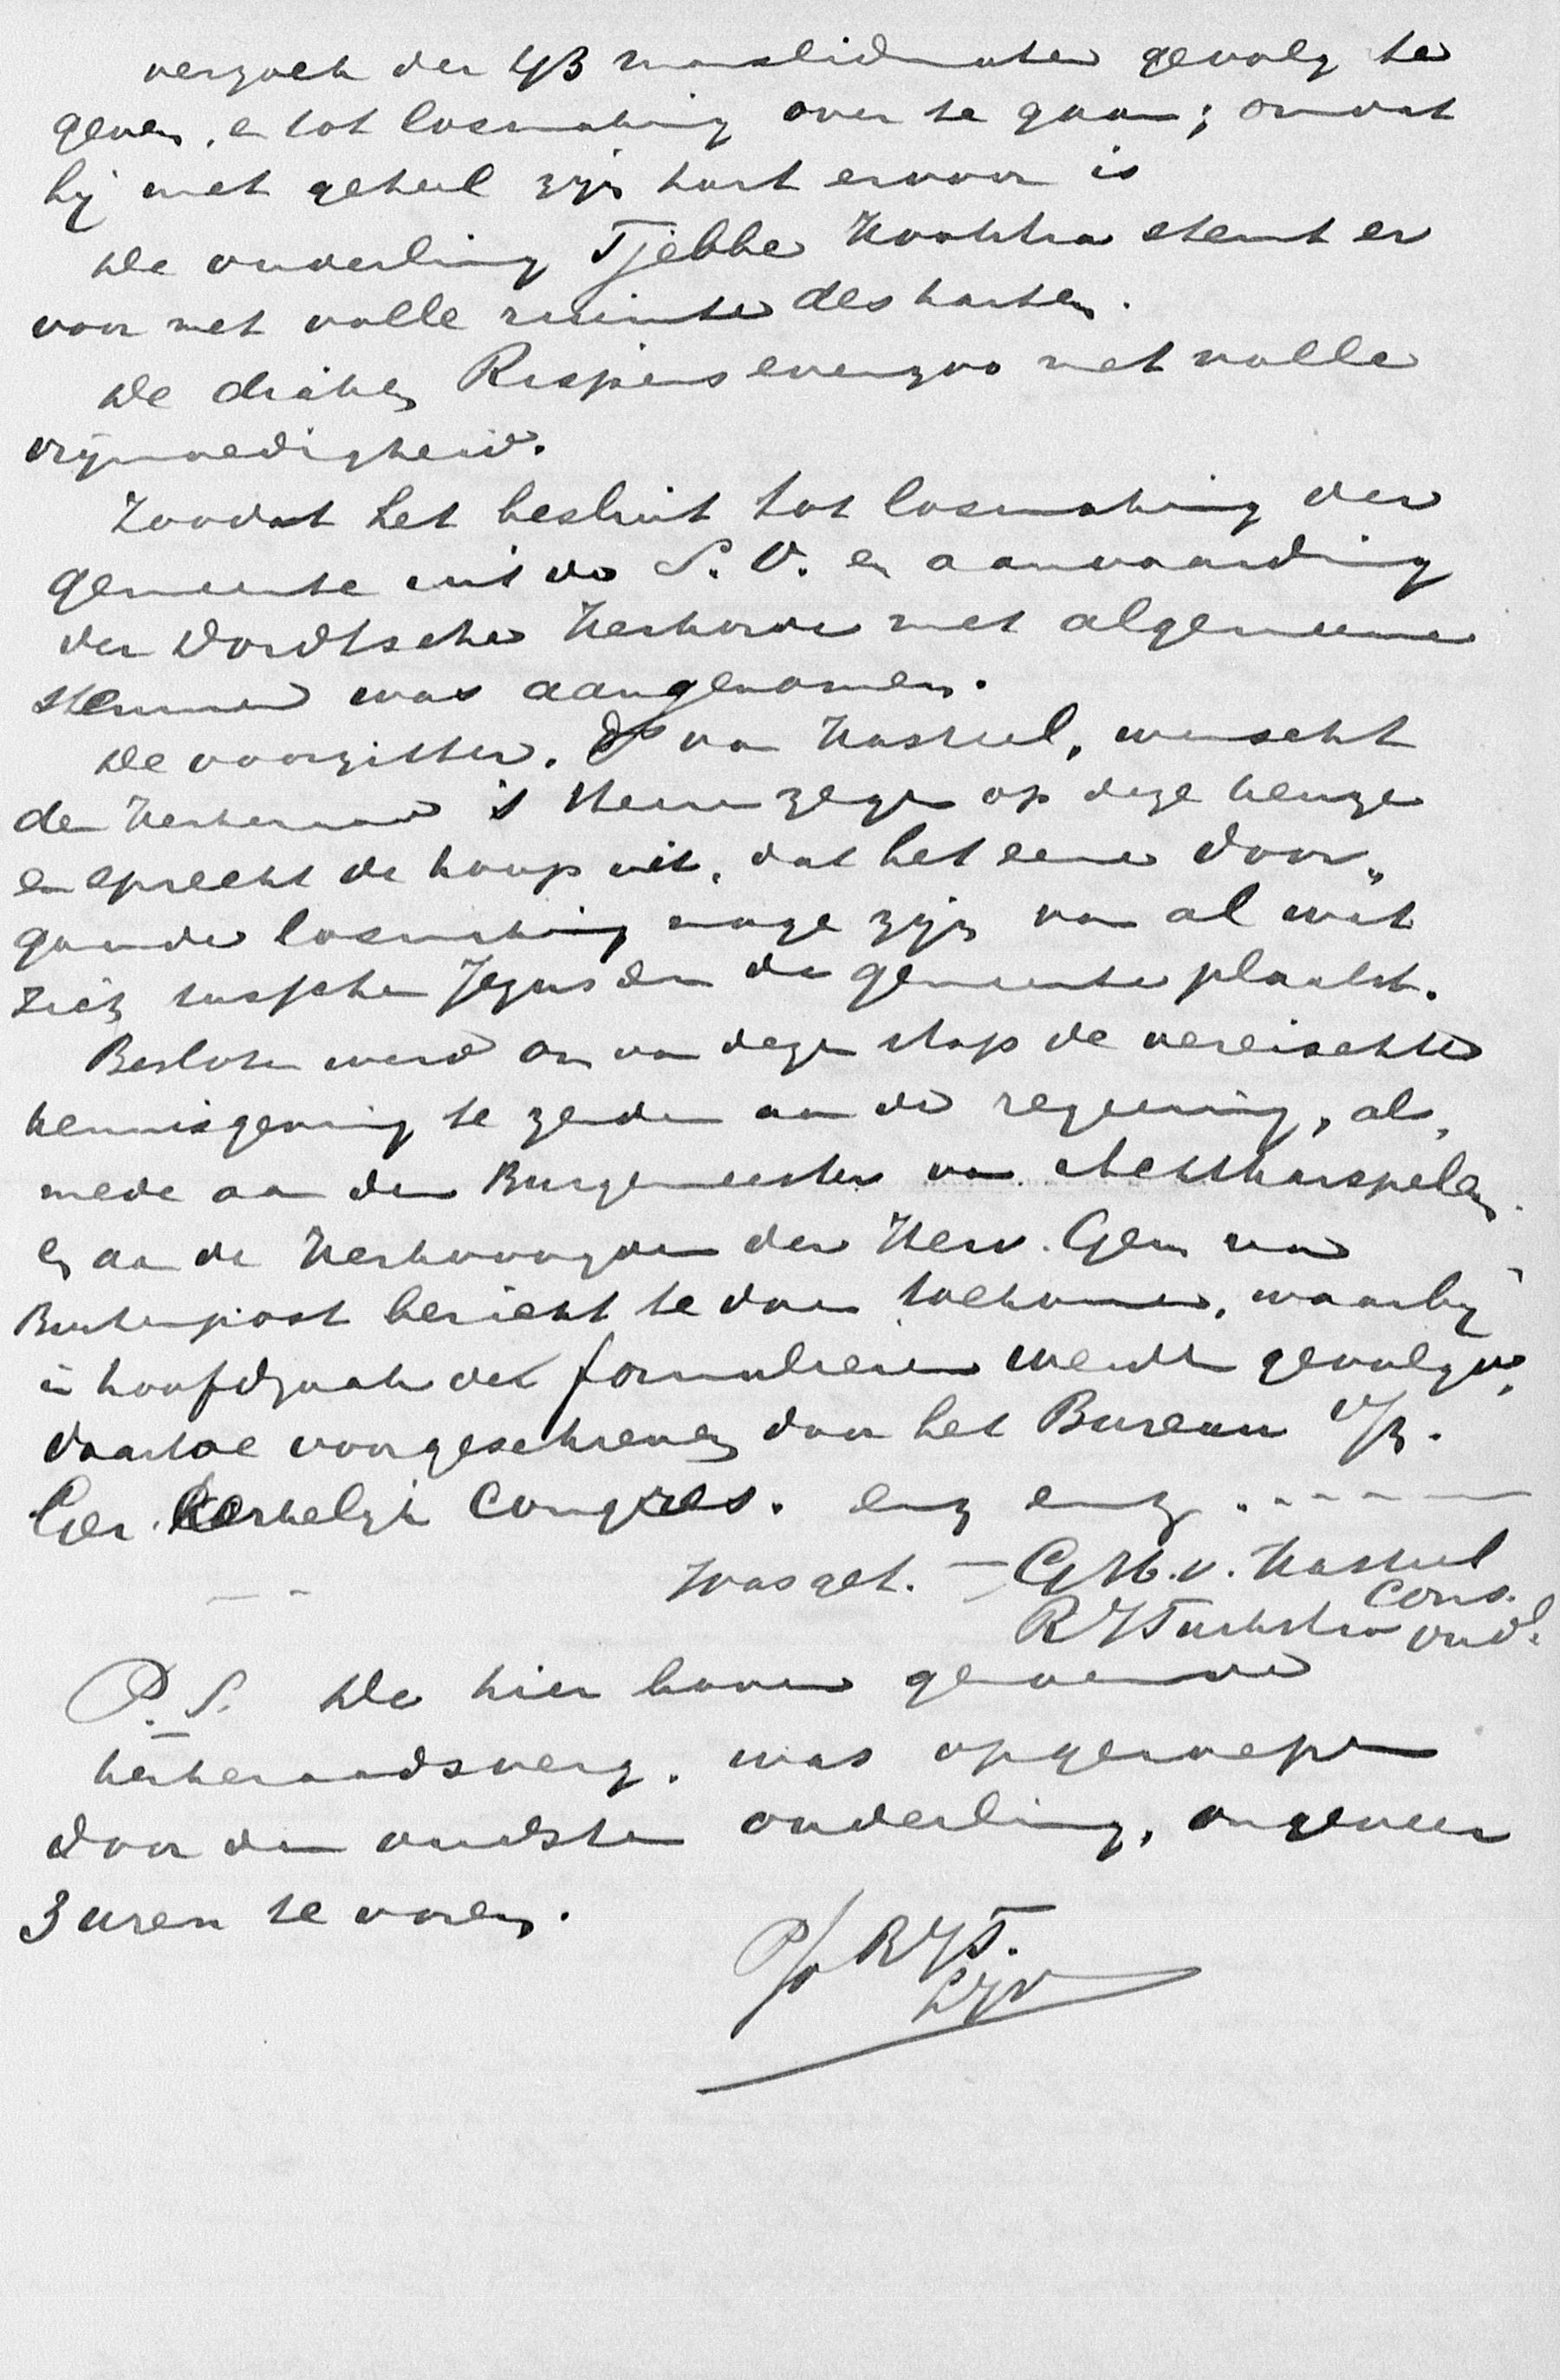 verzoek der 43 manslidmaten gevolg te
geven, en tot losmaking over te gaan; omdat
hij met geheel zijn hart ervoor is
De ouderling Tjebbe Hoekstra stemt er
voor met volle ruimte des harten.
De diaken Rispens evenzoo met volle
vrijmoedigheid.
Zoodat het besluit tot losmaking der
gemeente uit de S. O. en aanvaarding
der Dordtsche Kerkorde met algemeene
stemmen was aangenomen.
De voorzitter. Ds van Kasteel, wenscht
den Kerkeraad 's Heeren zegen op deze keuze
en spreekt de hoop uit, dat het eene door„
gaande losmaking moge zijn van al wat
zich tusschen Jezus en de gemeente plaatst.
Besloten werd om van dezen stap de vereischte
kennisgeving te zenden aan de regeering, als„
mede aan den Burgemeester van Achtkarspelen,
en aan de Kerkvoogden der Herv. Gem van
Buitenpost bericht te doen toekomen, waarbij
in hoofdzaak de formulieren werden gevolgd,
daartoe voorgeschreven door het Bureau v/h.
Ger. Kerkelijk Congres. enz enz. -----
Was get. - G H. v. Kasteel
Cons.
R Tuckstra oud.
P.S. De hier boven genoemde
kerkeraadsverg. was opgeroepen
door den oudsten ouderling, ongeveer
3 uren te voren.